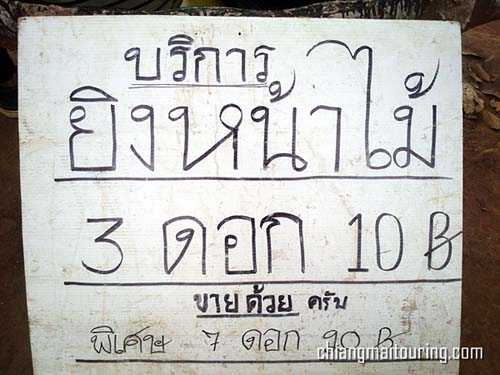 บริการ
ยิงหน้าไม้
3 ดอก 10 B
ขายด้วย ครับ
พิเศษ 7 ดอก 20 B
chiangmaitouring.com